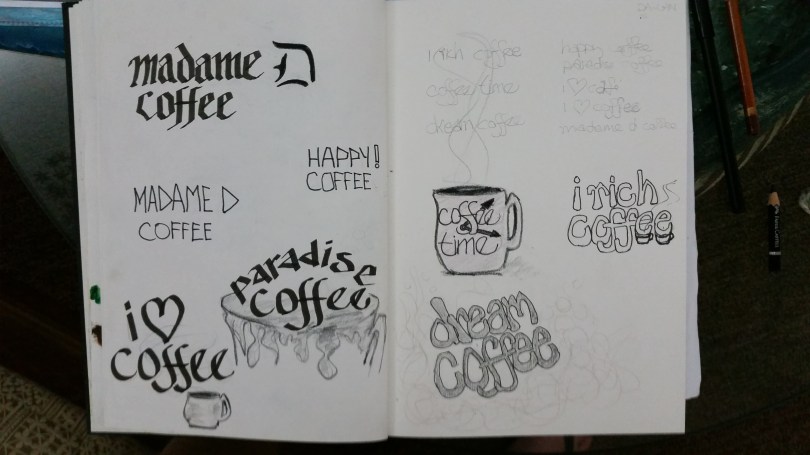 madame D
coffee
HAPPY!
COFFEE
MADAME D
COFFEE
paradise
coffee
i♡
coffee
i rich coffee
coffee time
dream coffee
happy coffee
paradise coffee
i♡café
i♡coffee
madame d coffee
coffee
time
i rich
coffee
dream
coffee